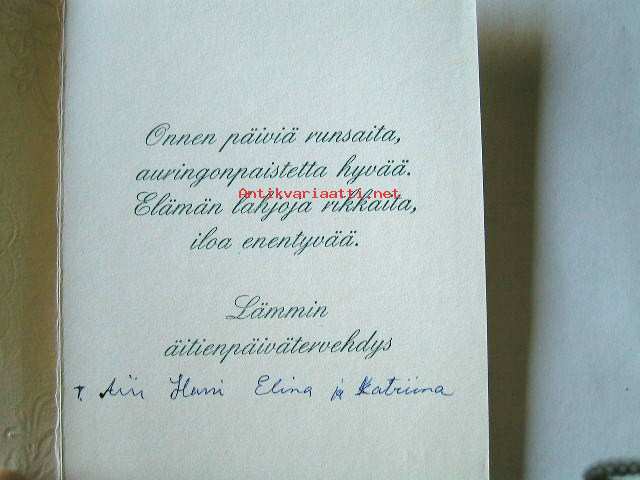 Onnen päiviä runsaita,
auringonpaistetta hyvää.
Antikvariaatti.net
Elämän lahjoja rikkaita,
iloa enentyvää.
Lämmin
äitienpäivätervehdys
T. Airi Harri Elina ja Katriina